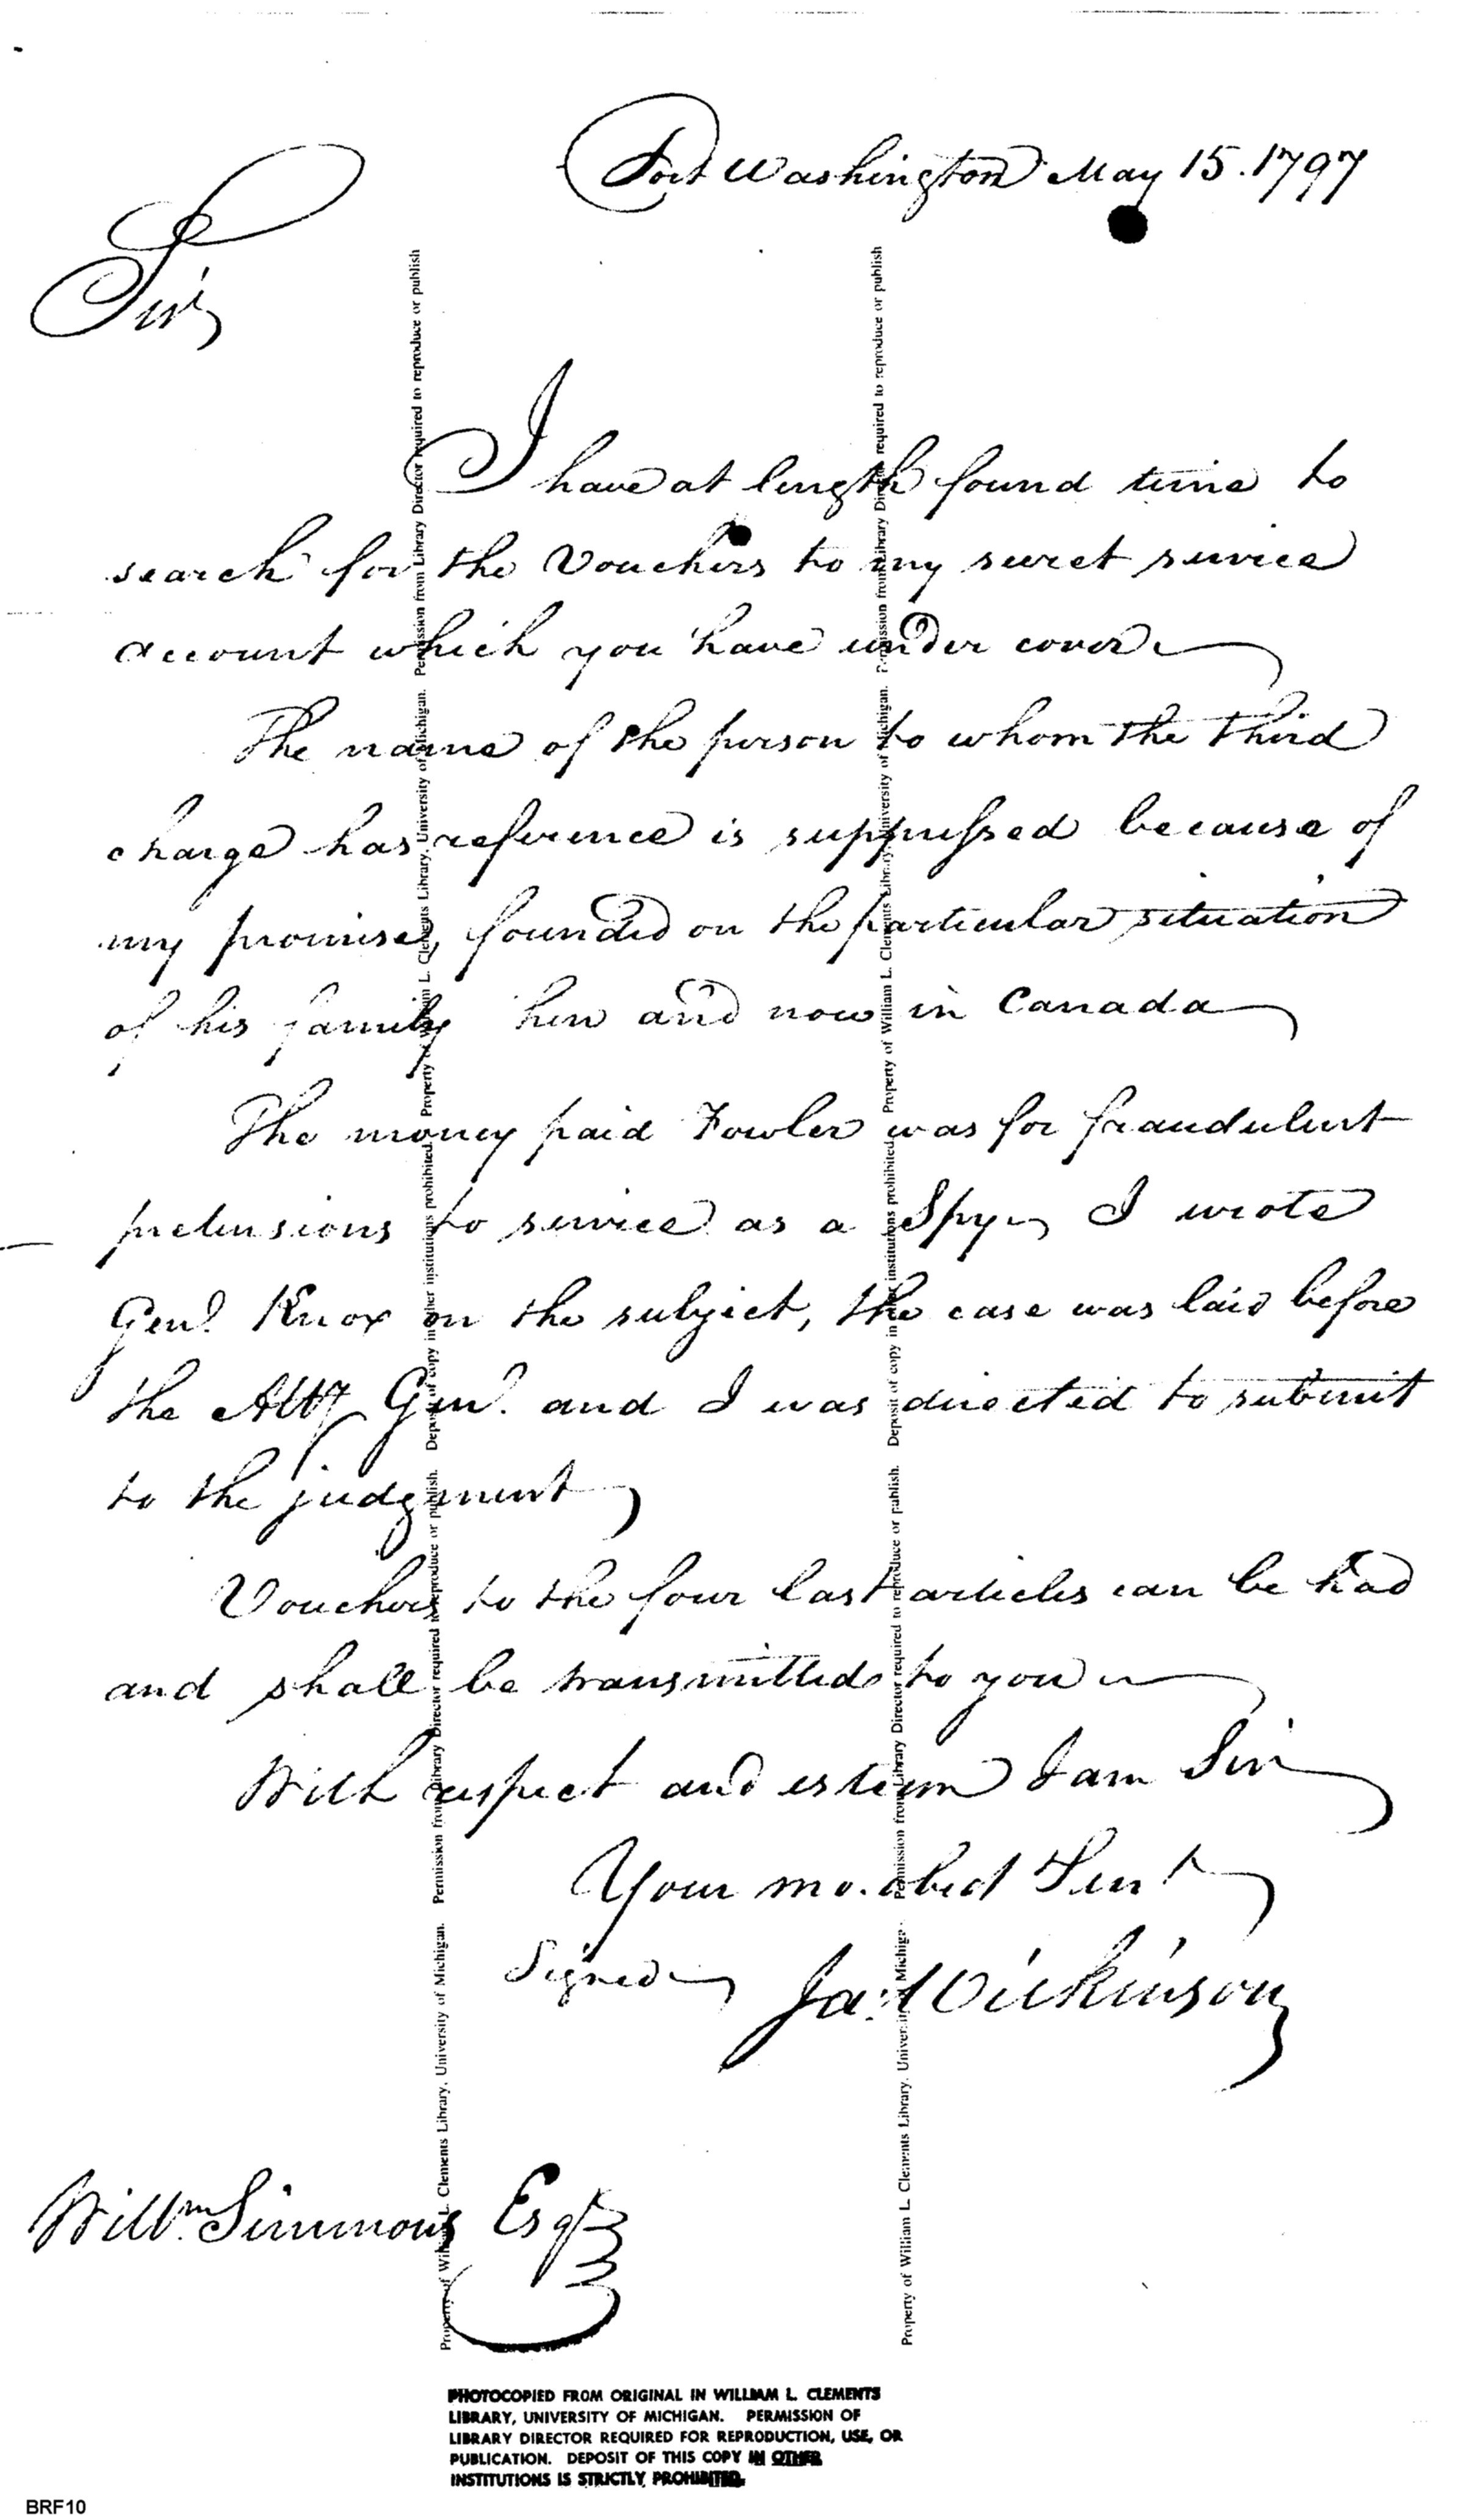 Fort Washington May 15. 1797
Sir,
I have at length found time to
search for the Vouchers to my secret service
account which you have under cover
The name of the person to whom the third
charge has reference is suppressed because of
my promise, founded on the particular situation
of his family then and now in Canada
The money paid Fowler was for fraudulent
pretensions to service as a Spy, I wrote
Genl. Knox on the subject, the case was laid before
the Atty Genl. and I was directed to submit
to the judgment
Vouchers to the four last articles can be had
and shall be transmitted to you
With respect and esteem I am Sir
Your mo. obed Servt
Signed
Willm. Simmons Esqr
Property of William L. Clements Library, University of Michigan. Permission from Library Director required to reproduce or publish. Deposit of copy in other institutions prohibited. Property of William L. Clements Library, University of Michigan. Permission from Library Director required to reproduce or publish
Property of William L. Clements Library, University of Michigan. Permission from Library Director required to reproduce or publish. Deposit of copy in other institutions prohibited. Property of William L. Clements Library, University of Michigan. Permission from Library Director required to reproduce or publish
PHOTOCOPIED FROM ORIGINAL IN WILLIAM L. CLEMENTS
LIBRARY, UNIVERSITY OF MICHIGAN. PERMISSION OF
LIBRARY DIRECTOR REQUIRED FOR REPRODUCTION, USE, OR
PUBLICATION. DEPOSIT OF THIS COPY IN OTHER
INSTITUTIONS IS STRICTLY PROHIBITED.
BRF10